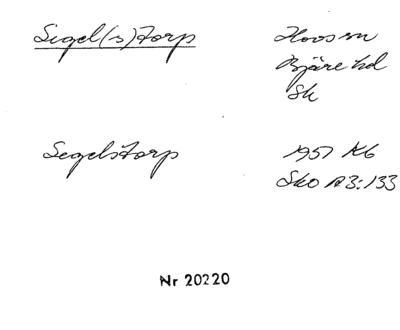 Segel(s)torp
Hovs sn
Bjäre hd
Sk
Segelstorp
1951 AG
Sko A3:133
Nr 20220